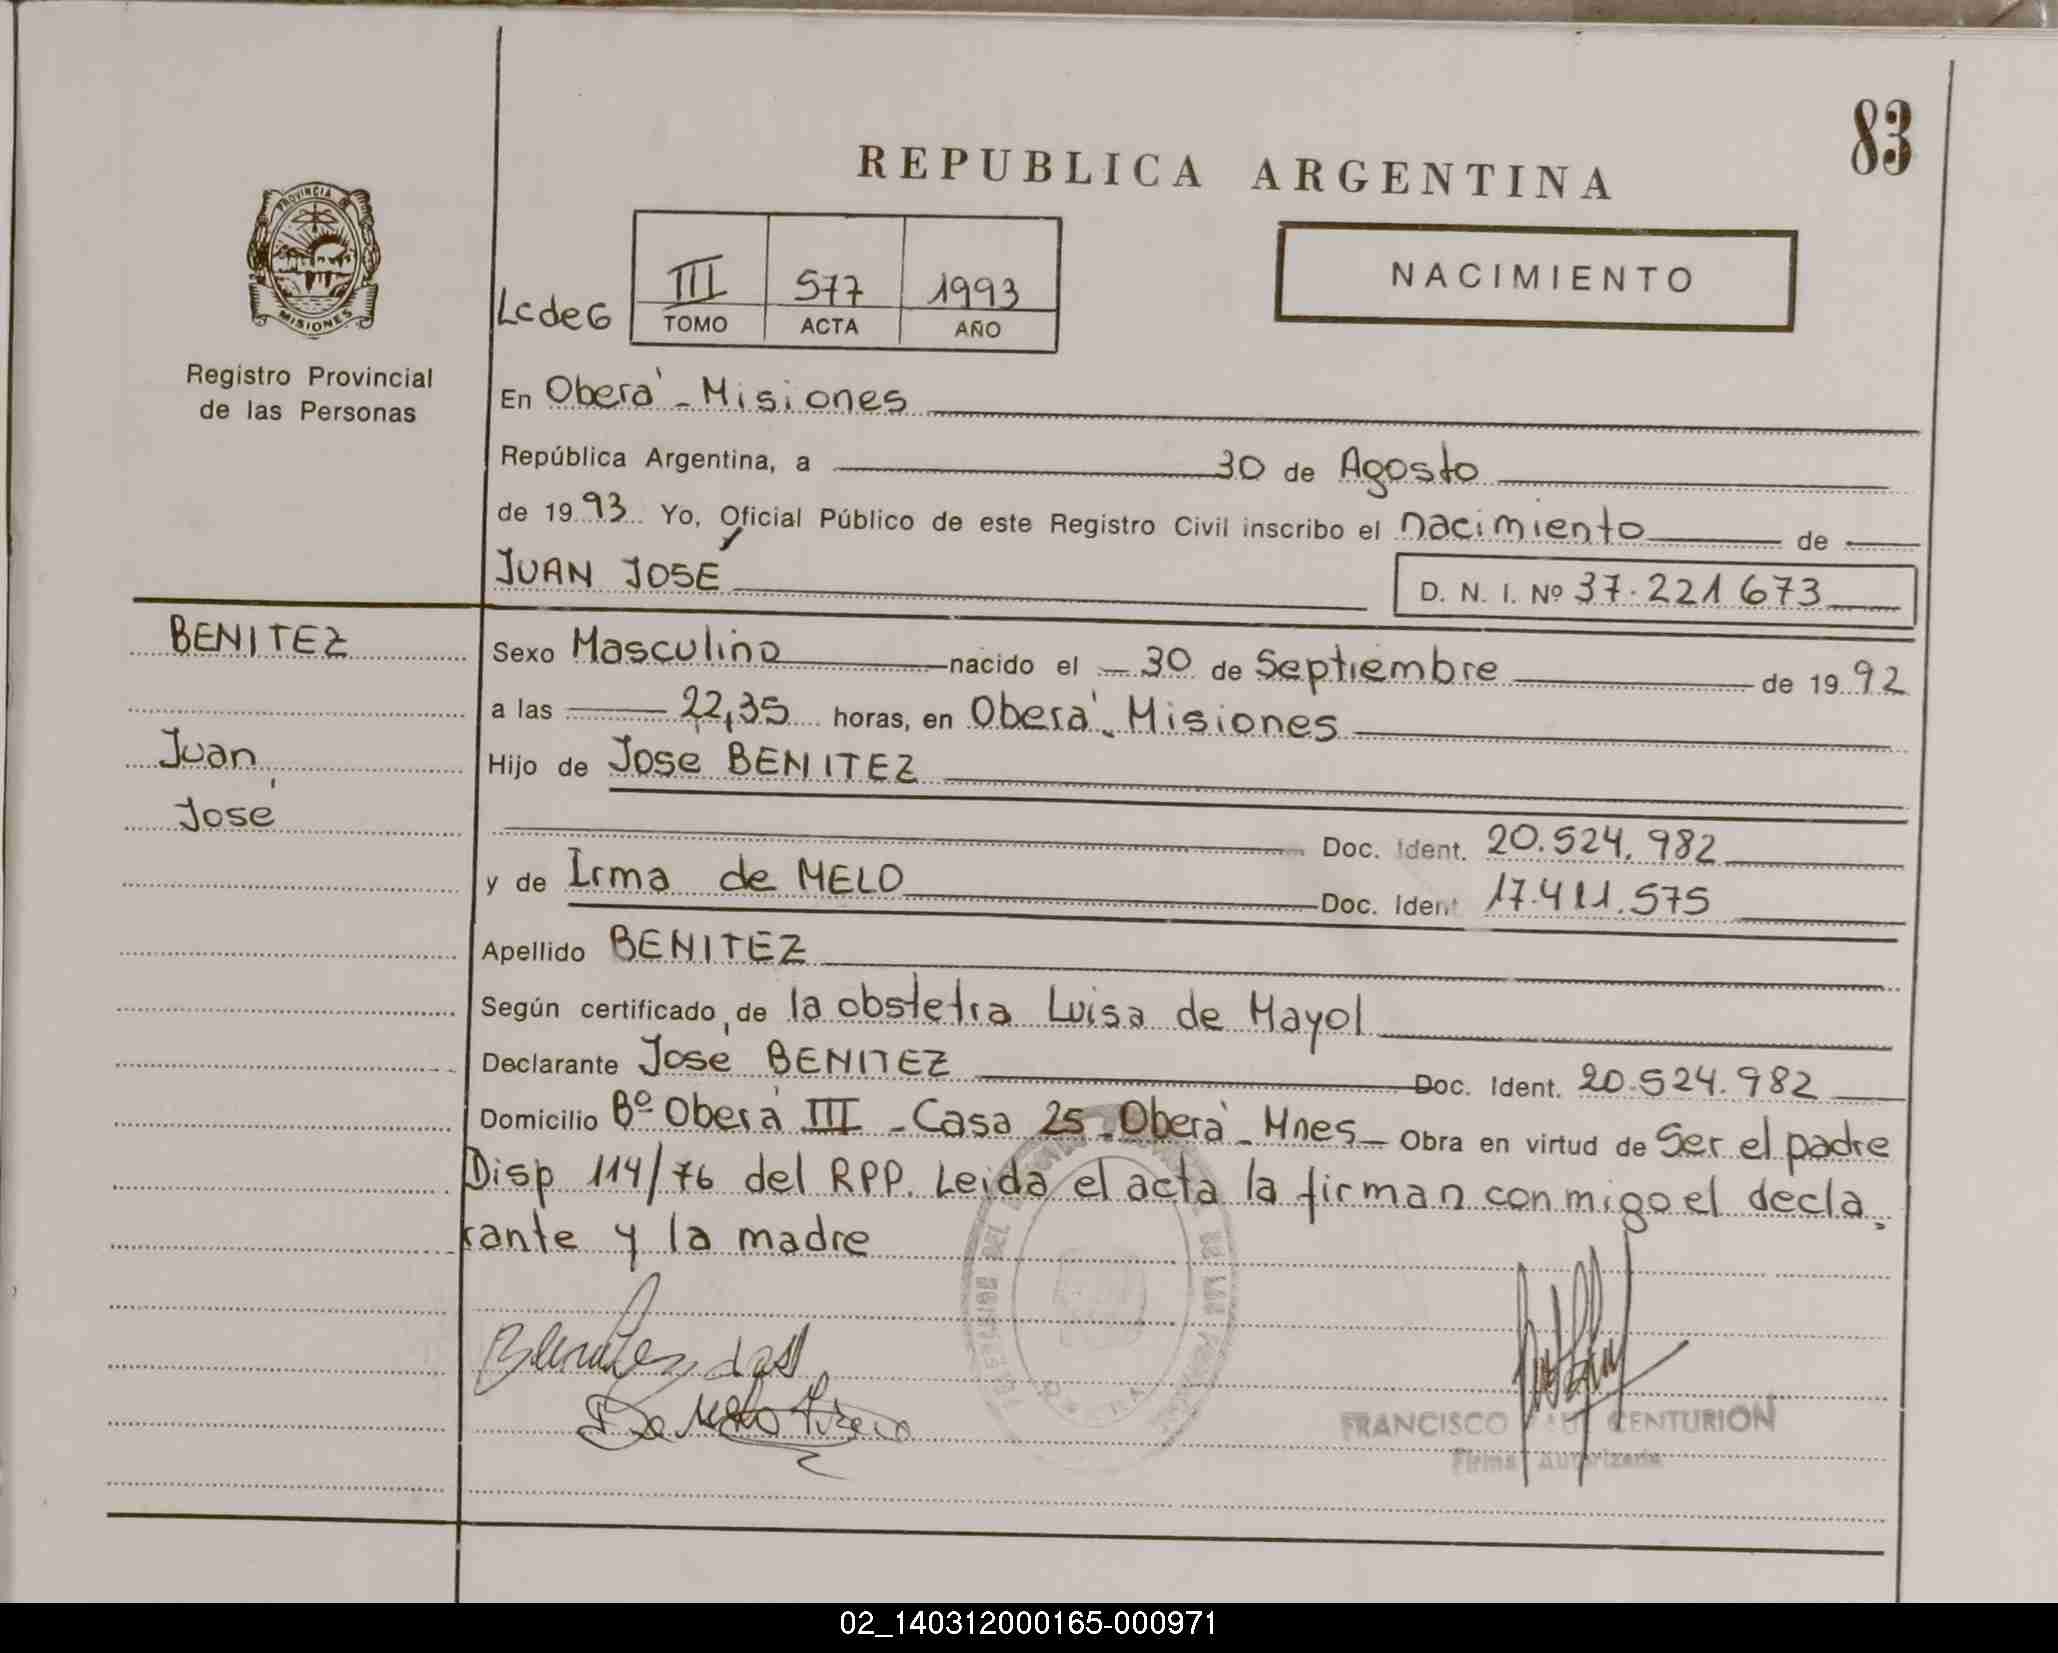 83
REPUBLICA ARGENTINA
PROVINCIA DE
MISIONES
Registro Provincial
de las Personas
NACIMIENTO
LcdeG
III 577 1993
TOMO ACTA AÑO
En Oberá - Misiones
República Argentina, a 30 de Agosto
de 1993 Yo, Oficial Público de este Registro Civil inscribo el nacimiento de
JUAN JOSÉ D. N. I. Nº 37.221 673
BENITEZ
Juan
José
Sexo Masculino nacido el 30 de Septiembre de 1992
a las 22,35 horas, en Oberá - Misiones
Hijo de Jose BENITEZ
Doc. Ident. 20.524.982
y de Irma de MELO Doc. Ident 17.411.575
Apellido BENITEZ
Según certificado de la obstetra Luisa de Mayol
Declarante José BENITEZ Doc. Ident. 20.524.982
Domicilio Bº Oberá III - Casa 25 - Oberá - Mnes - Obra en virtud de Ser el padre
Disp 114/76 del RPP. Leida el acta la firman conmigo el decla
rante y la madre
Benitez José
De Melo
FRANCISCO CENTURION
Firma Autorizada
02_140312000165-000971